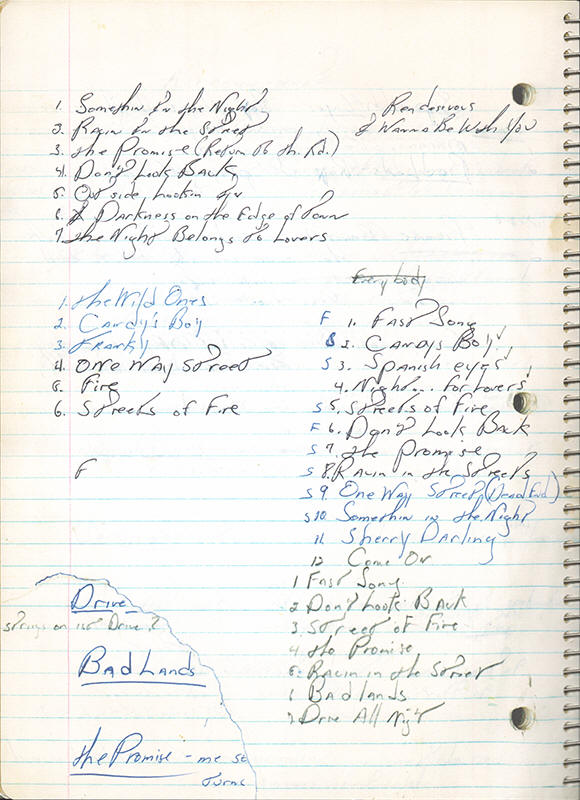 1. Somethin In the Night
2. Racin In the Street
3. the Promise (Return to th. Rd.)
4. Don't Look Back
5. Outside Lookin In
6. Darkness on the Edge of Town
7. the Night Belongs to Lovers
Rendesvous
I Wanna Be With You
1. the Wild Ones
2. Candy's Boy
3. Frankly
4. One Way Street
5. Fire
6. Streets of Fire
F
Everybody
F 1. Fast Song
S 2. Candys Boy
S 3. Spanish eyes
4. Night... for Lovers
S 5. Streets of Fire
F 6. Don't Look Back
S 7. the Promise
S 8. Racin in the Streets
S 9. One Way Street (Dead End)
S 10 Somethin in the Night
11 Sherry Darling
12 Come On
1 Fast Song
2 Don't Look Back
3. Street of Fire
4 the Promise
5. Racin in the Street
6 Badlands
7 Drive All Nigt
Drive
strings on 1st Drive?
BadLands
the Promise - me st
turns